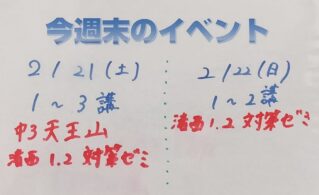 今週末のイベント
2/21(土)
1~3講
中3天王山
湝西1.2 対策ゼミ
2/22(日)
1~2講
湝西1.2 対策ゼミ